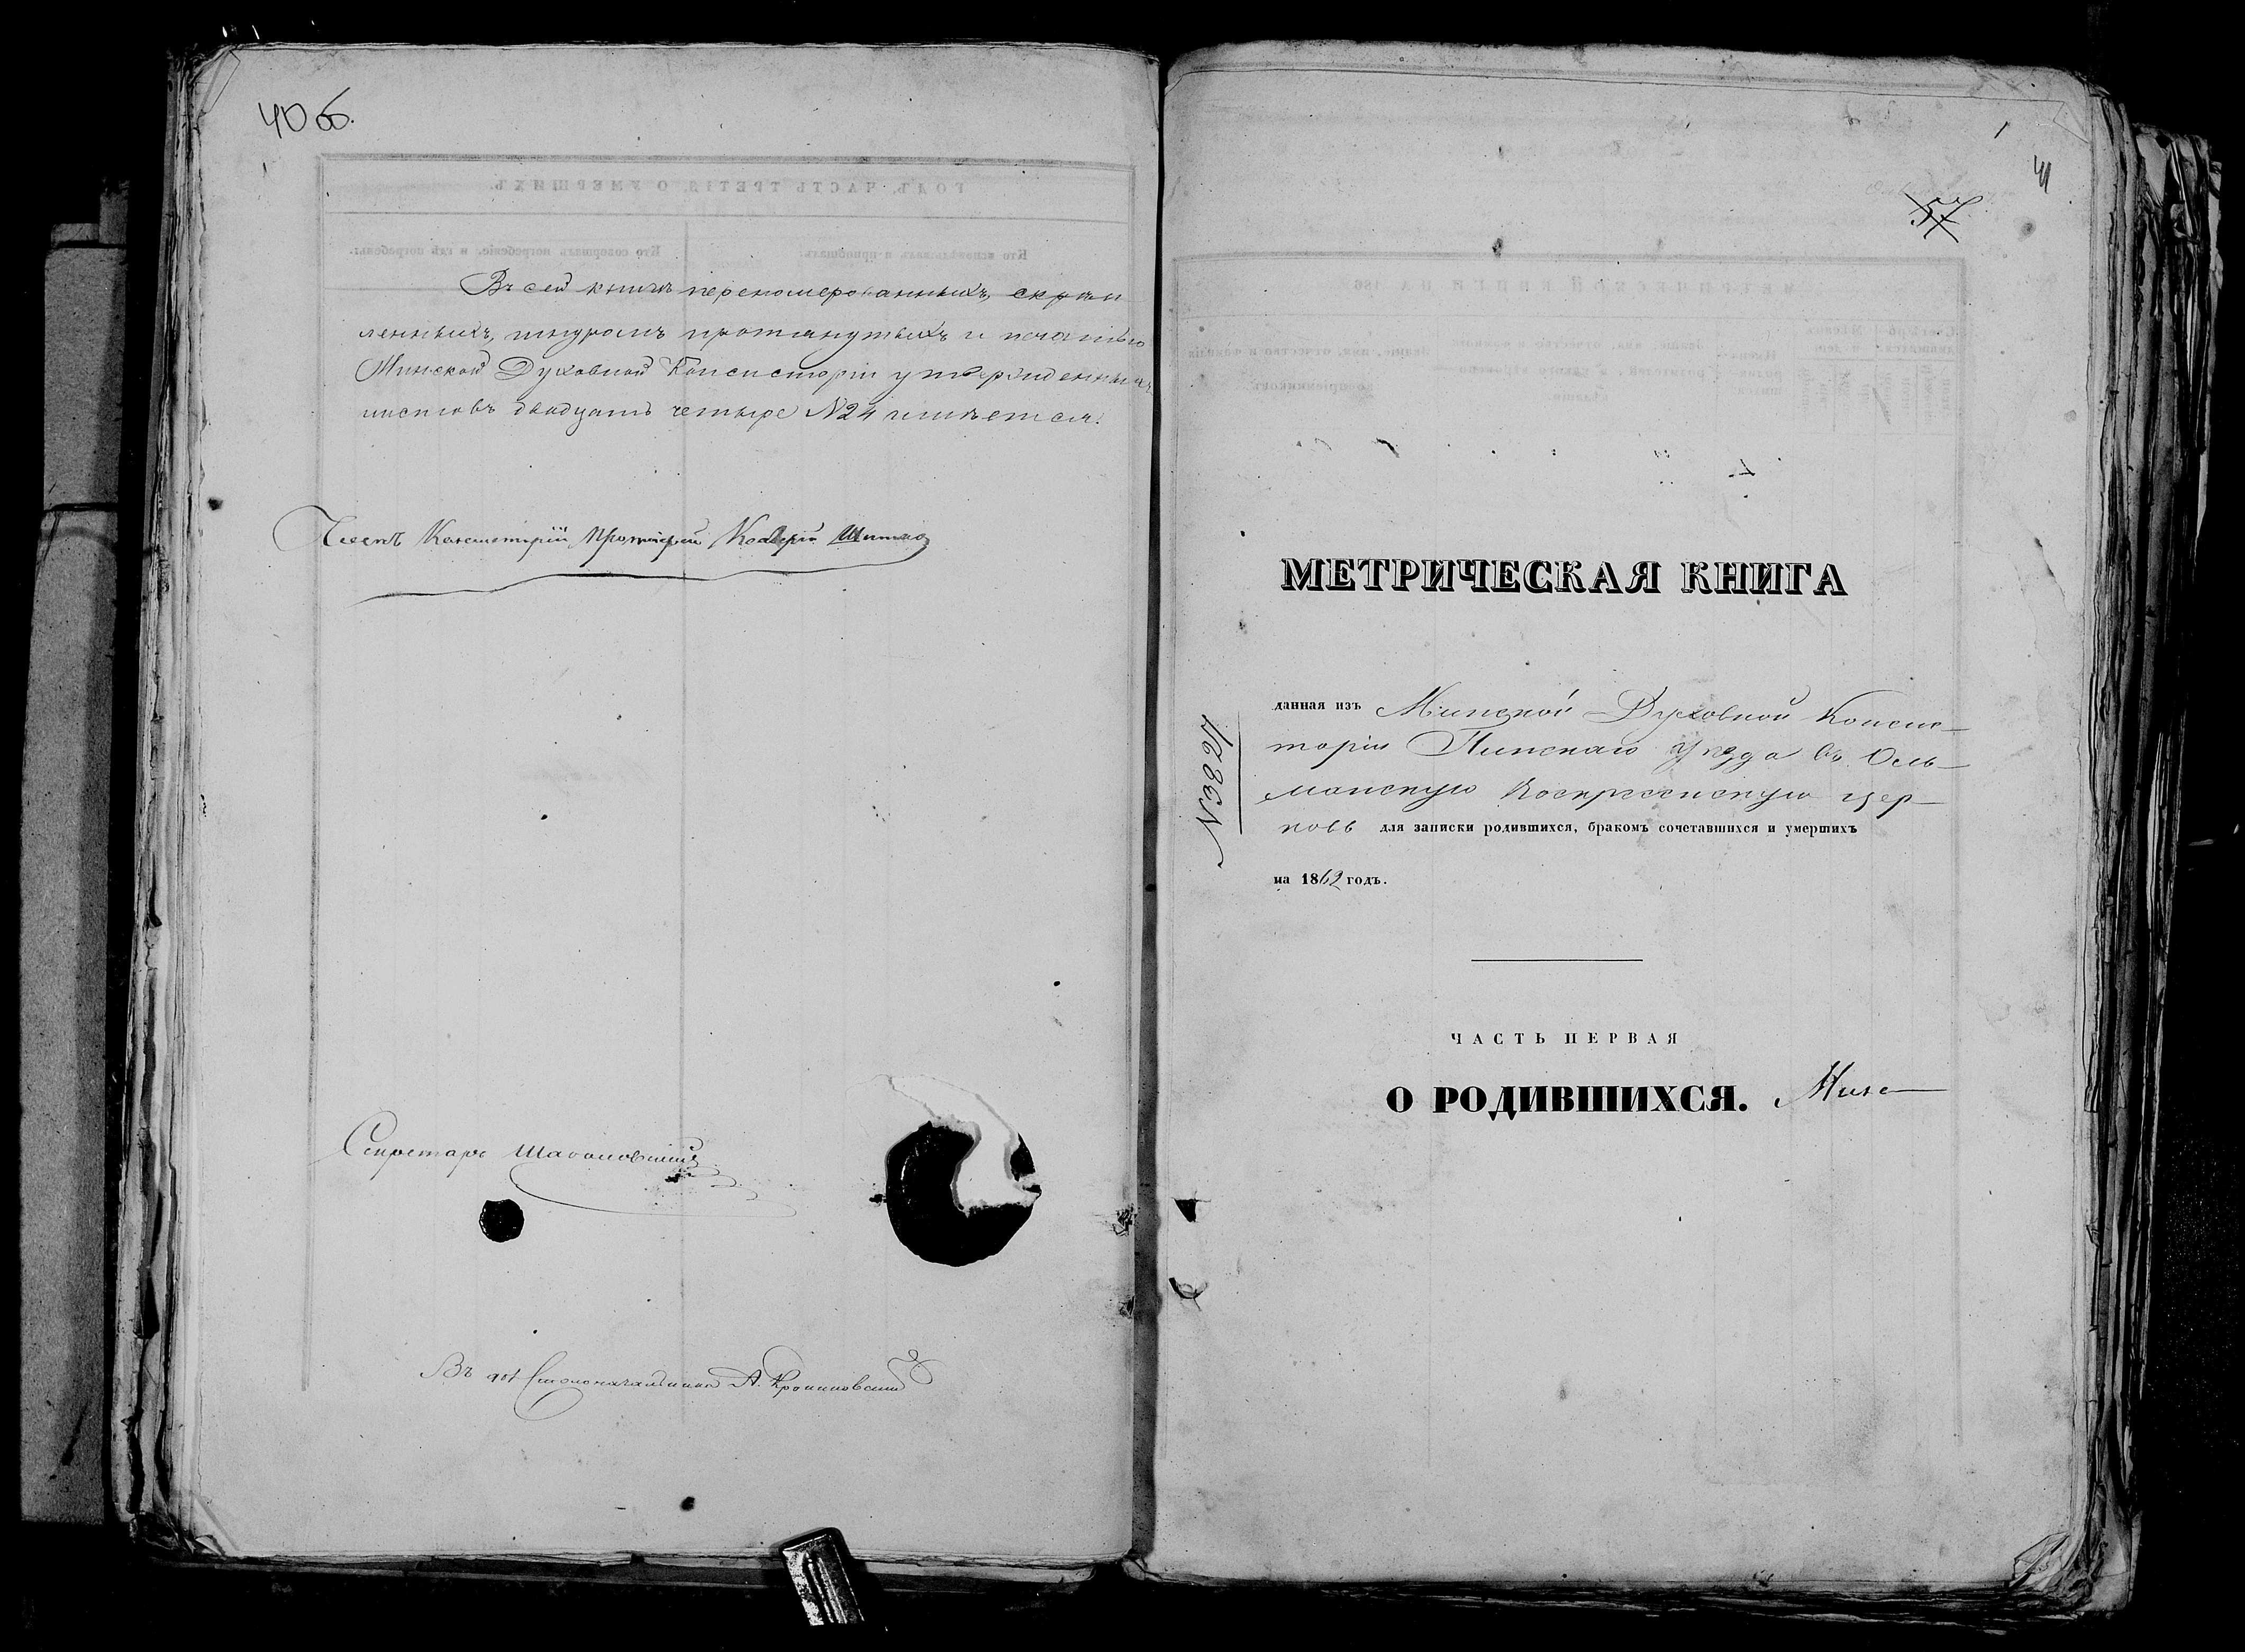 40 об.
Въ сей книгѣ перенумерованныхъ, скрѣп
ленныхъ, шнуромъ протянутыхъ и печатью
Минской Духовной Консисторіи утвержденныхъ
листовъ двадцать четыре №24 имѣется.
Членъ Консисторіи Протоіерей
Секретарь
Въ Столоначальника А.
1
41
57
МЕТРИЧЕСКАЯ КНИГА
данная изъ Минской Духовной Консис-
торіи Пинскаго уѣзда въ Оль-
манскую Воскресенскую цер-
ковь для записки родившихся, бракомъ сочетавшихся и умершихъ
на 1862 годъ.
ЧАСТЬ ПЕРВАЯ
О РОДИВШИХСЯ.